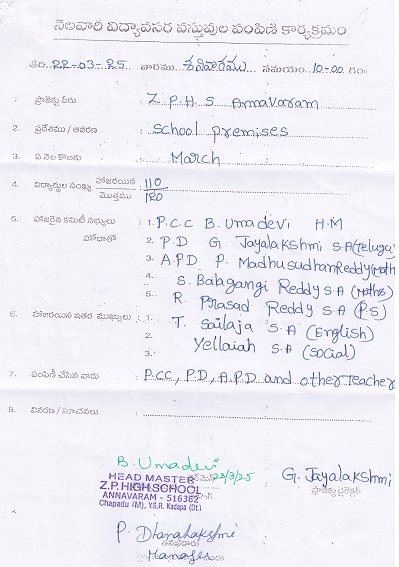 నెలవారి విద్యావసర వస్తువుల పంపిణి కార్యక్రమం
తేది. 22-03-25 వారము శనివారము సమయం. 10-00 గం॥
1. ప్రాజెక్టు పేరు : Z.P.H.S Annavaram
2. ప్రదేశము / ఆవరణ : school premises
3. ఏ నెల కొఱకు : March
4. విద్యార్థుల సంఖ్య హాజరయిన 110
మొత్తము 120
5. హాజరైన కమిటీ సభ్యులు : 1. P.C.C B. Umadevi H.M
హోదాతో 2. P.D G. Jayalakshmi S.A (Telugu)
3. A.P.D P. Madhusudhan Reddy (Maths
4. S. Balagangi Reddy S.A (Maths)
5. R. Prasad Reddy S.A (P.S)
6. హాజరయిన ఇతర ముఖ్యులు : 1. T. Sailaja S.A (English)
2. Yellaiah S.A (Social)
3.
7. పంపిణీ చేసిన వారు : P.CC, P.D, A.P.D and other Teacher
8. వివరణ / సూచనలు :
B. Umadevi
22/3/25
HEAD MASTER
Z.P.HIGH SCHOOL
ANNAVARAM - 516362
Chapadu (M), Y.S.R. Kadapa (Dt.)
G. Jayalakshmi
ప్రాజెక్టు డైరెక్టర్
P. Dhanalakshmi